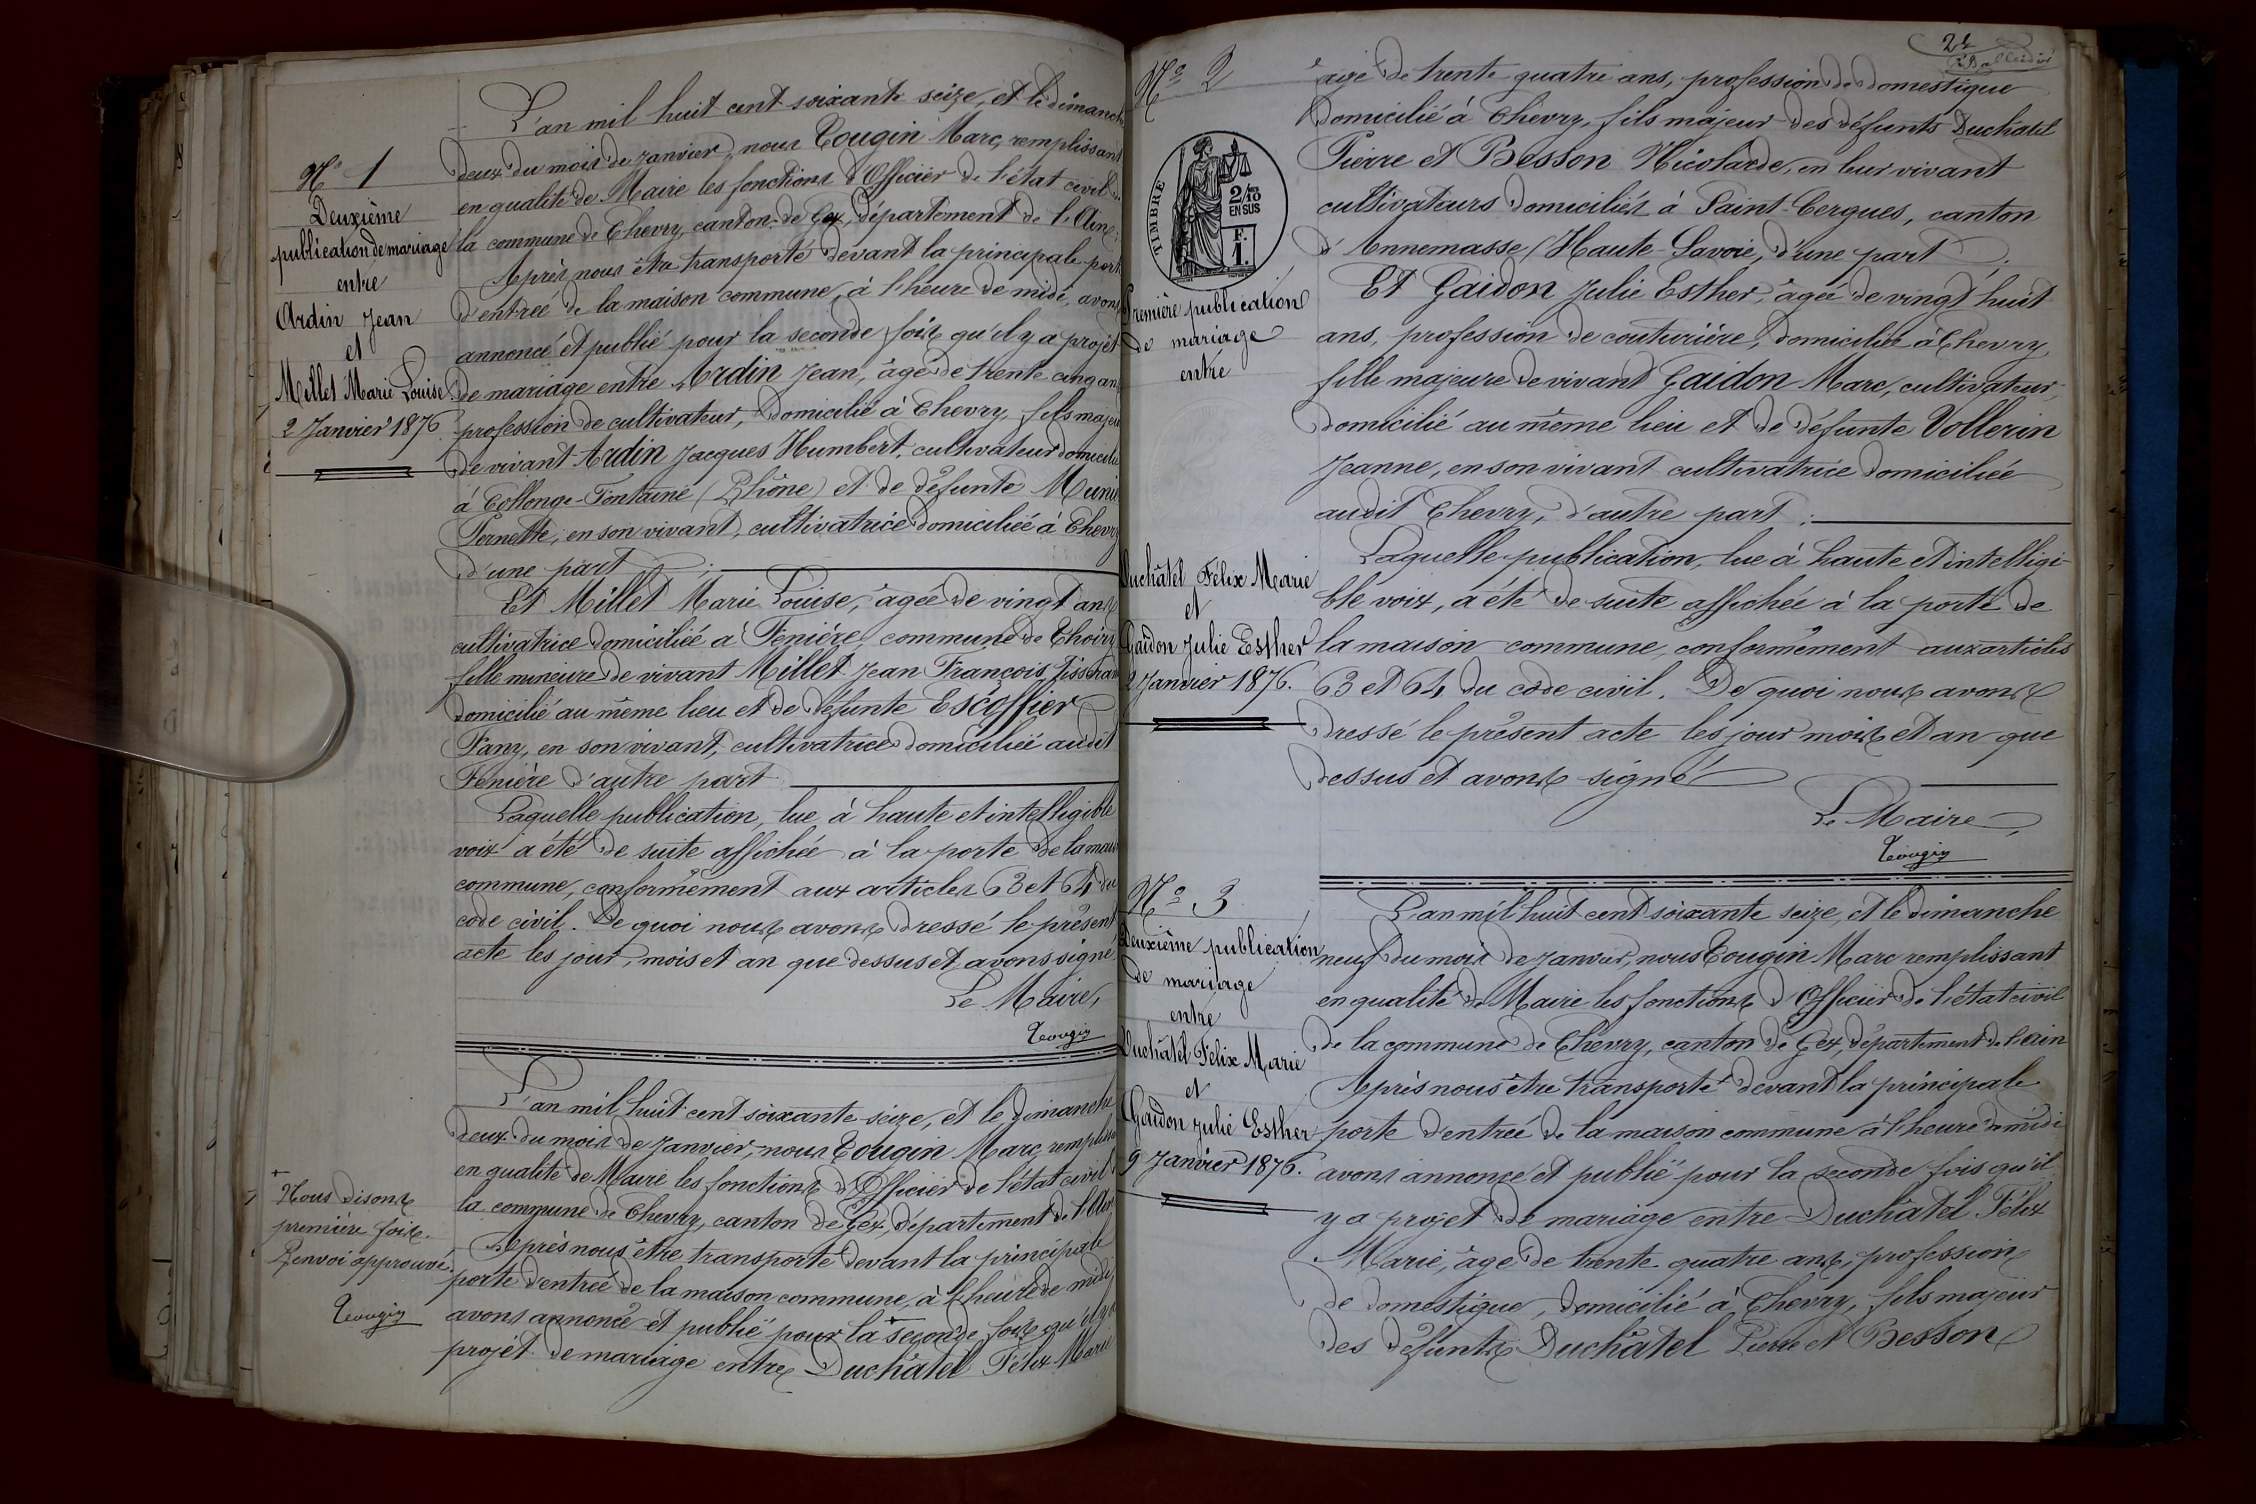 N° 1
Deuxième
publication de mariage
entre
Ardin Jean
et
Millet Marie Louise
2 Janvier 1876
L'an mil huit cent soixante seize, et le dimanche
deux du mois de Janvier, nous Tougin Marc, remplissant
en qualité de Maire les fonctions d'Officier de l'état civil de
la commune de Chevry, canton de Gex, département de l'Ain.
Après nous être transporté devant la principale porte
d'entrée de la maison commune, à l'heure de midi, avons
annoncé et publié pour la seconde fois qu'il y a projet
de mariage entre Ardin Jean, âgé de trente cinq ans
profession de cultivateur, domicilié à Chevry, fils majeur
de vivant Ardin Jacques Humbert, cultivateur domicilié
à Collonge-Fontaine (Rhône) et de défunte Munier
Pernette, en son vivant, cultivatrice domiciliée à Chevry
d'une part ;
Et Millet Marie Louise, âgée de vingt ans
cultivatrice domiciliée à Fenière, commune de Thoiry
fille mineure de vivant Millet Jean François, tisserand
domicilié au même lieu et de défunte Escoffier
Fany, en son vivant, cultivatrice domiciliée audit
Fenière d'autre part
Laquelle publication, lue à haute et intelligible
voix a été de suite affichée à la porte de la maison
commune, conformément aux articles 63 et 64 du
code civil. De quoi nous avons dressé le présent
acte les jour, mois et an que dessus et avons signé
Le Maire,
Tougin
L'an mil huit cent soixante-seize, et le dimanche
deux du mois de Janvier, nous Tougin Marc, remplissant
en qualité de Maire les fonctions d'Officier de l'état civil
la commune de Chevry, canton de Gex, département de l'Ain
Après nous être transporté devant la principale
porte d'entrée de la maison commune, à l'heure de midi
avons annoncé et publié pour la + seconde fois qu'il y a
projet de mariage entre Duchâtel Félix Marie
+
Nous disons
première fois.
Renvoi approuvé.
Tougin
24
N° 2
TIMBRE
2/10
EN SUS
F.
1.
Première publication
de mariage
entre
Duchâtel Félix Marie
et
Gaidon Julie Esther
2 Janvier 1876.
âgé de trente quatre ans, profession de domestique
domicilié à Chevry, fils majeur des défunts Duchatel
Pierre et Besson Nicolarde, en leur vivant
cultivateurs domiciliés à Saint-Cergues, canton
d'Annemasse (Haute-Savoie, d'une part ;
Et Gaidon Julie Esther, âgée de vingt huit
ans, profession de couturière, domiciliée à Chevry,
fille majeure de vivant Gaidon Marc, cultivateur,
domicilié au même lieu et de défunte Vollerin
Jeanne, en son vivant cultivatrice domiciliée
audit Chevry, d'autre part ;
Laquelle publication, lue à haute et intelligi-
ble voix, a été de suite affichée à la porte de
la maison commune, conformément aux articles
63 et 64 du code civil. De quoi nous avons
dressé le présent acte les jour mois et an que
dessus et avons signé
Le Maire,
Tougin
N° 3
Deuxième publication
de mariage
entre
Duchâtel Félix Marie
et
Gaidon Julie Esther
9 Janvier 1876.
L'an mil huit cent soixante seize, et le dimanche
neuf du mois de Janvier, nous Tougin Marc remplissant
en qualité de Maire les fonctions d'Officier de l'état civil
de la commune de Chevry, canton de Gex, département de l'ain
Après nous être transporté devant la principale
porte d'entrée de la maison commune à l'heure de midi
avons annoncé et publié pour la seconde fois qu'il
y a projet de mariage entre Duchâtel Félix
Marie, âgé de trente quatre ans, profession
de domestique, domicilié à Chevry, fils majeur
des défunts Duchâtel Pierre et Besson